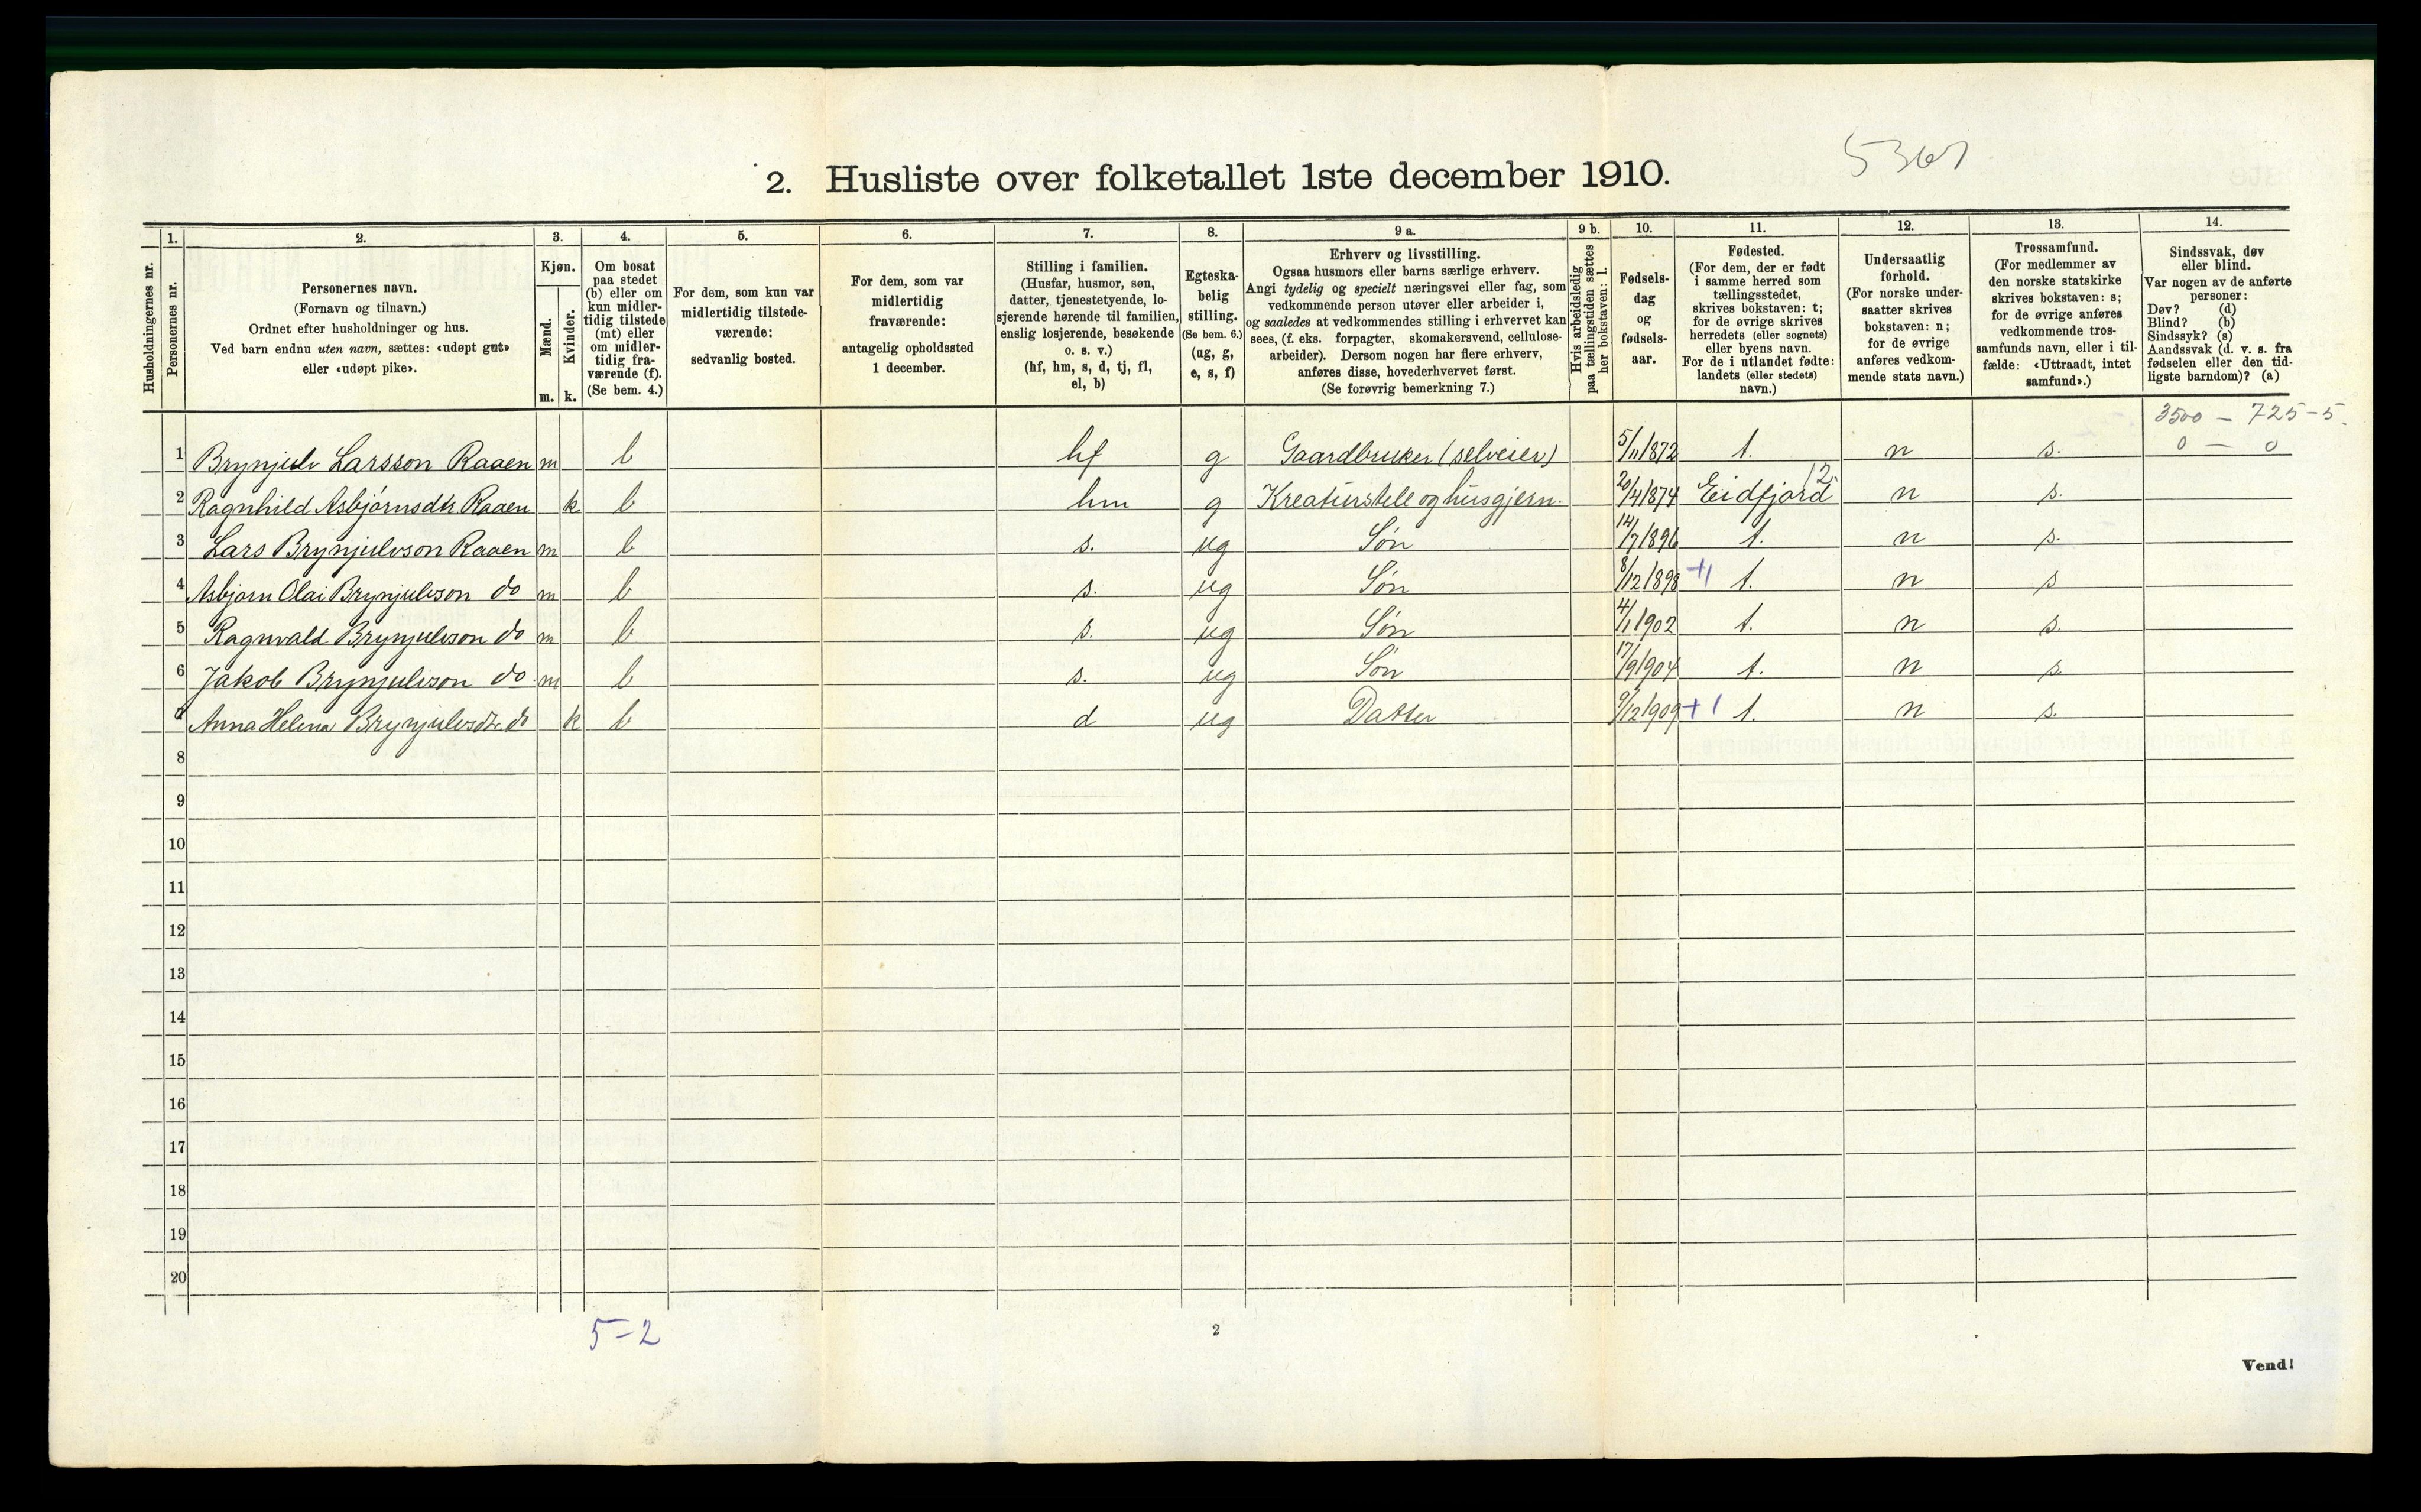 5361
2. Husliste over folketallet 1ste december 1910.
Husholdningernes nr.
1.
Personernes nr.
2.
Personernes navn.
(Fornavn og tilnavn.)
Ordnet efter husholdninger og hus.
Ved barn endnu uten navn, sættes: «udøpt gut»
eller «udøpt pike».
3.
Kjøn.
Mænd.
Kvinder.
m. k.
4.
Om bosat
paa stedet
(b) eller om
kun midler-
tidig tilstede
(mt) eller
om midler-
tidig fra-
værende (f).
(Se bem. 4.)
5.
For dem, som kun var
midlertidig tilstede-
værende:
sedvanlig bosted.
6.
For dem, som var
midlertidig
fraværende:
antagelig opholdssted
1 december.
7.
Stilling i familien.
(Husfar, husmor, søn,
datter, tjenestetyende, lo-
sjerende hørende til familien,
enslig losjerende, besøkende
o. s. v.)
(hf, hm, s, d, tj, fl,
el, b)
8.
Egteska-
belig
stilling.
(Se bem. 6.)
(ug, g,
e, s, f)
9 a.
Erhverv og livsstilling.
Ogsaa husmors eller barns særlige erhverv.
Angi tydelig og specielt næringsvei eller fag, som
vedkommende person utøver eller arbeider i,
og saaledes at vedkommendes stilling i erhvervet kan
sees, (f. eks. forpagter, skomakersvend, cellulose-
arbeider). Dersom nogen har flere erhverv,
anføres disse, hovederhvervet først.
(Se forøvrig bemerkning 7.)
9 b.
Hvis arbeidsledig
paa tællingstiden sættes
her bokstaven: l.
10.
Fødsels-
dag
og
fødsels-
aar.
11.
Fødested.
(For dem, der er født
i samme herred som
tællingsstedet,
skrives bokstaven: t;
for de øvrige skrives
herredets (eller sognets)
eller byens navn.
For de i utlandet fødte:
landets (eller stedets)
navn.)
12.
Undersaatlig
forhold.
(For norske under-
saatter skrives
bokstaven: n;
for de øvrige
anføres vedkom-
mende stats navn.)
13.
Trossamfund.
(For medlemmer av
den norske statskirke
skrives bokstaven: s;
for de øvrige anføres
vedkommende tros-
samfunds navn, eller i til-
fælde: «Uttraadt, intet
samfund».)
14.
Sindssvak, døv
eller blind.
Var nogen av de anførte
personer:
Døv? (d)
Blind? (b)
Sindssyk? (s)
Aandssvak (d. v. s. fra
fødselen eller den tid-
ligste barndom)? (a)
3500 – 725-5.
1 Brynjulv Larsson Raaen m b hf g Gaardbruker (selveier) 5/11 1872 t. n s. 0 — 0
2 Ragnhild Asbjørnsdtr. Raaen k b hm g Kreaturstell og husgjern. 20/4 1874 Eidfjord 12 n s.
3 Lars Brynjulvson Raaen m b s. ug Søn 14/7 1896 t. n s.
4 Asbjørn Olai Brynjulvson do m b s. ug Søn 8/12 1898 +1 t. n s
5 Ragnvald Brynjulvson do m b s. ug Søn 4/1 1902 t. n s.
6 Jakob Brynjulvson do. m b s. ug Søn 17/9 1904 t. n s.
7 Anna Helena Brynjulvsdtr. do k b d ug Datter 9/12 1909 +1 t. n s.
8
9
10
11
12
13
14
15
16
17
18
19
20
5-2
2
Vend!